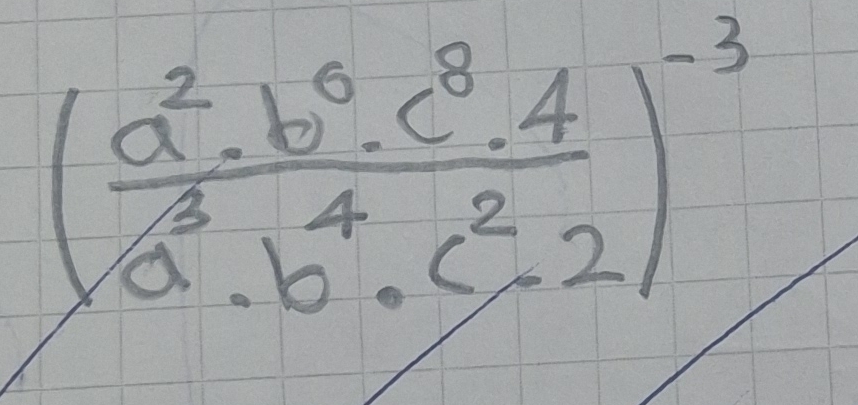 (a² . b⁶ . c⁸ . 4 / a³ . b⁴ . c² . 2)⁻³